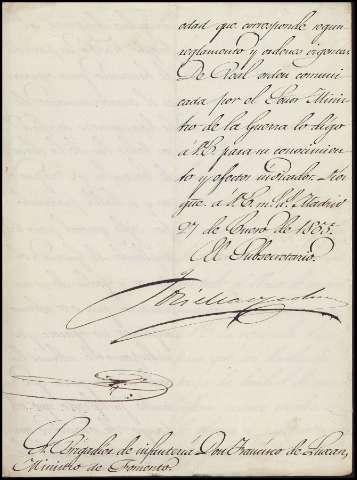 edad que corresponde segun
reglamento y ordenes vigentes.
De Real orden comuni
cada por el Señor Minis
tro de la Guerra lo digo
á V.E. para su conocimien
to y efectos indicados. Dios
gue. á V.E. m.s a.s Madrid
27 de Enero de 1855.
El Subsecretario.
Sr. Brigadier de infantería Don Francisco de Luxan,
Ministro de Fomento.